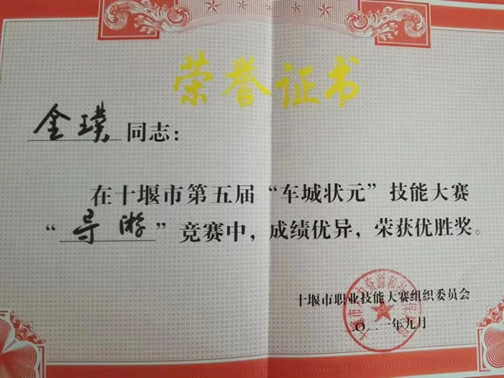 荣誉证书
金璞同志：
在十堰市第五届“车城状元”技能大赛
“导游”竞赛中，成绩优异，荣获优胜奖。
十堰市职业技能大赛组织委员会
二〇二一年九月